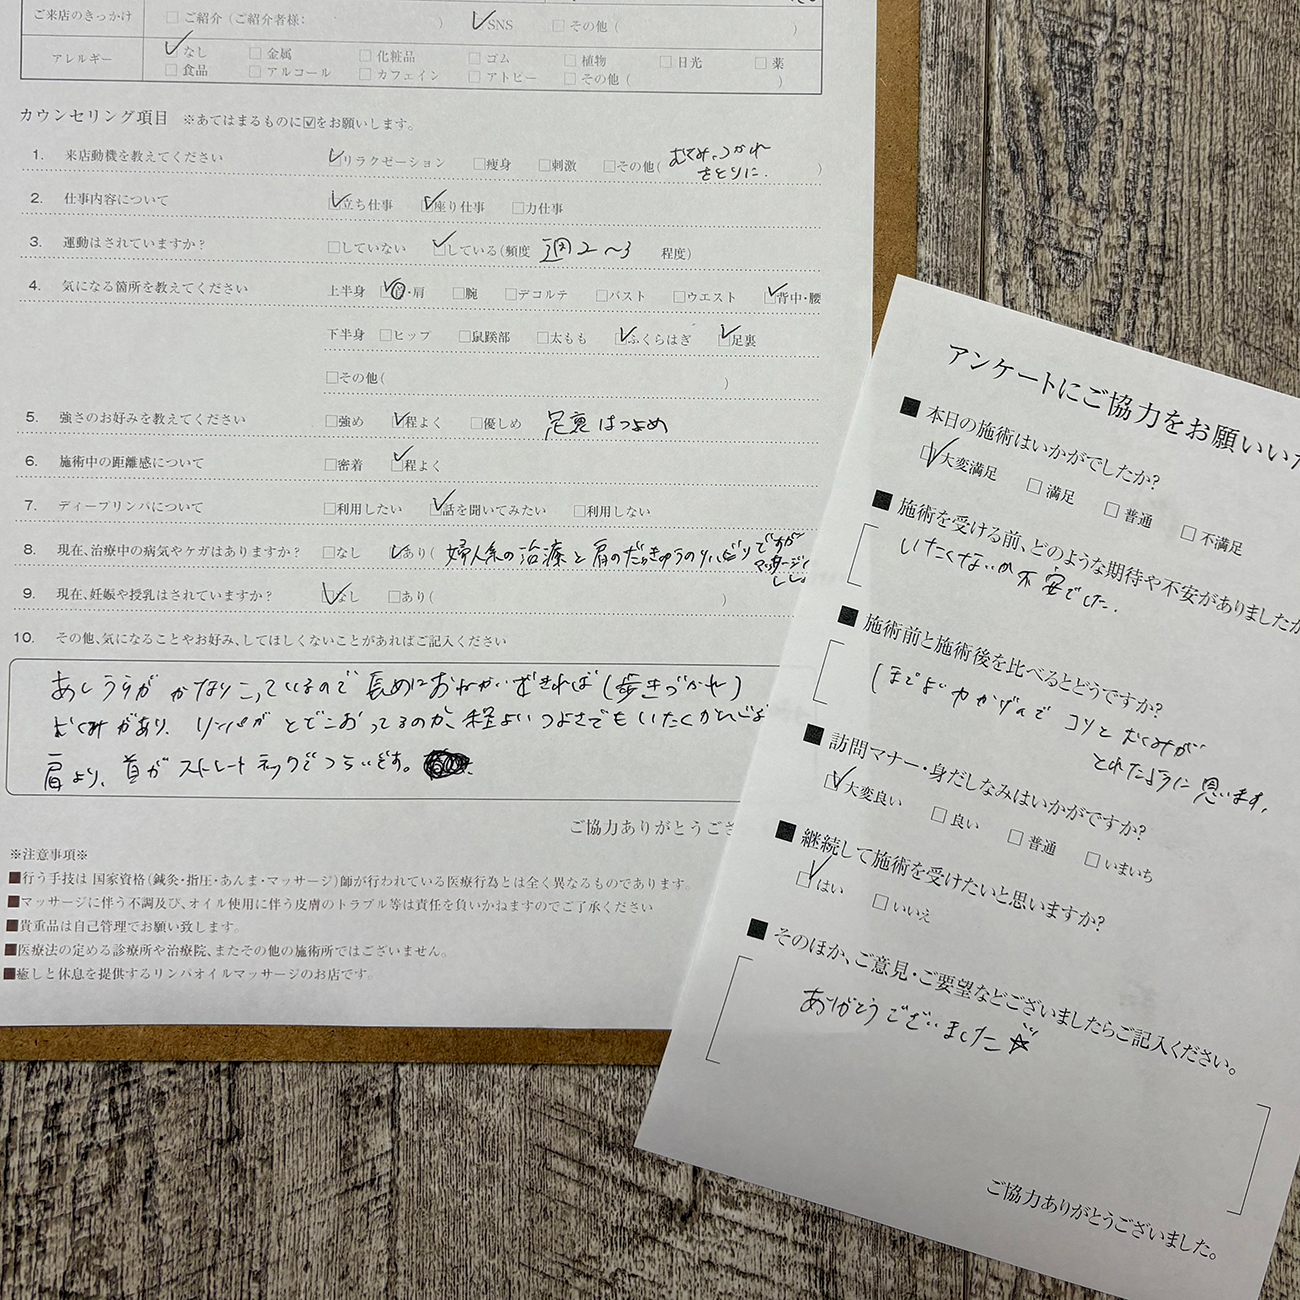 ご来店のきっかけ □ご紹介（ご紹介者様： ） ☑SNS □その他（ ）
アレルギー ☑なし □金属 □化粧品 □ゴム □植物 □日光 □薬
□食品 □アルコール □カフェイン □アトピー □その他（ ）
カウンセリング項目 ※あてはまるものに☑をお願いします。
1. 来店動機を教えてください ☑リラクゼーション □痩身 □刺激 □その他（むくみ、つかれ
をとりに. ）
2. 仕事内容について ☑立ち仕事 ☑座り仕事 □力仕事
3. 運動はされていますか？ □していない ☑している（頻度 週2〜3 程度）
4. 気になる箇所を教えてください 上半身 ☑首・肩 □腕 □デコルテ □バスト □ウエスト ☑背中・腰
下半身 □ヒップ □鼠蹊部 □太もも ☑ふくらはぎ ☑足裏
□その他（ ）
5. 強さのお好みを教えてください □強め ☑程よく □優しめ 足裏はつよめ
6. 施術中の距離感について □密着 ☑程よく
7. ディープリンパについて □利用したい ☑話を聞いてみたい □利用しない
8. 現在、治療中の病気やケガはありますか？ □なし ☑あり（婦人系の治療と肩のだっきゅうのリハビリですが
マッサージ
9. 現在、妊娠や授乳はされていますか？ ☑なし □あり（ ）
10. その他、気になることやお好み、してほしくないことがあればご記入ください
あしうらが かなりこっているので 長めにおねがいできれば（歩きづかれ）
むくみがあり、リンパが とどこおってるのか、程よいつよさでもいたくかんじ
肩より、首が ストレートネックでつらいです。
ご協力ありがとうござ
※注意事項※
■行う手技は 国家資格（鍼灸・指圧・あんま・マッサージ）師が行われている医療行為とは全く異なるものであります。
■マッサージに伴う不調及び、オイル使用に伴う皮膚のトラブル等は責任を負いかねますのでご了承ください
■貴重品は自己管理でお願い致します。
■医療法の定める診療所や治療院、またその他の施術所ではございません。
■癒しと休息を提供するリンパオイルマッサージのお店です。
アンケートにご協力をお願いいた
■ 本日の施術はいかがでしたか？
☑大変満足 □満足 □普通 □不満足
■ 施術を受ける前、どのような期待や不安がありましたか
いたくないか不安でした.
■ 施術前と施術後を比べるとどうですか？
ほどよい力かげんで コリと むくみが
とれたように思います。
■ 訪問マナー・身だしなみはいかがですか？
☑大変良い □良い □普通 □いまいち
■ 継続して施術を受けたいと思いますか？
☑はい □いいえ
■ そのほか、ご意見・ご要望などございましたらご記入ください。
ありがとうございました☆
ご協力ありがとうございました。